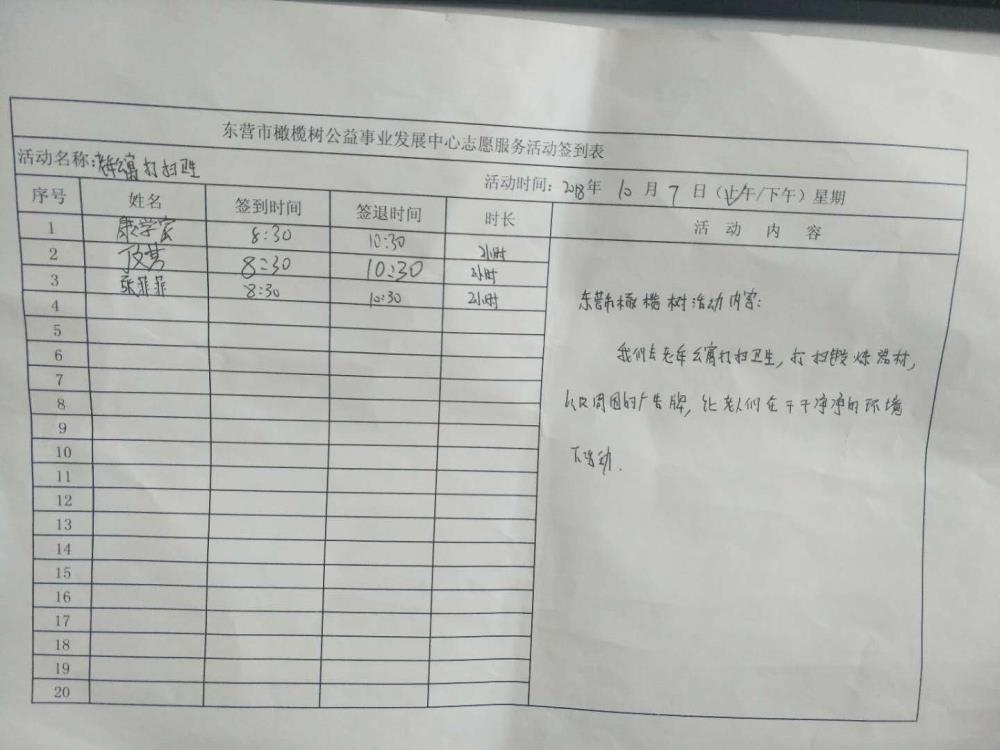 东营市橄榄树公益事业发展中心志愿服务活动签到表
活动名称: 打扫卫生 活动时间: 2018年 10 月 7 日（上午/下午）星期
序号 姓名 签到时间 签退时间 时长 活 动 内 容
1 康学宾 8:30 10:30 2小时
2 8:30 10:30 2小时
3 张菲菲 8:30 10:30 2小时
4
5
6
7
8
9
10
11
12
13
14
15
16
17
18
19
20
东营市橄榄树活动内容:
我们去老年公寓打扫卫生,打扫锻炼器材,
以及周围的广告牌,让老人们在干干净净的环境
下活动.